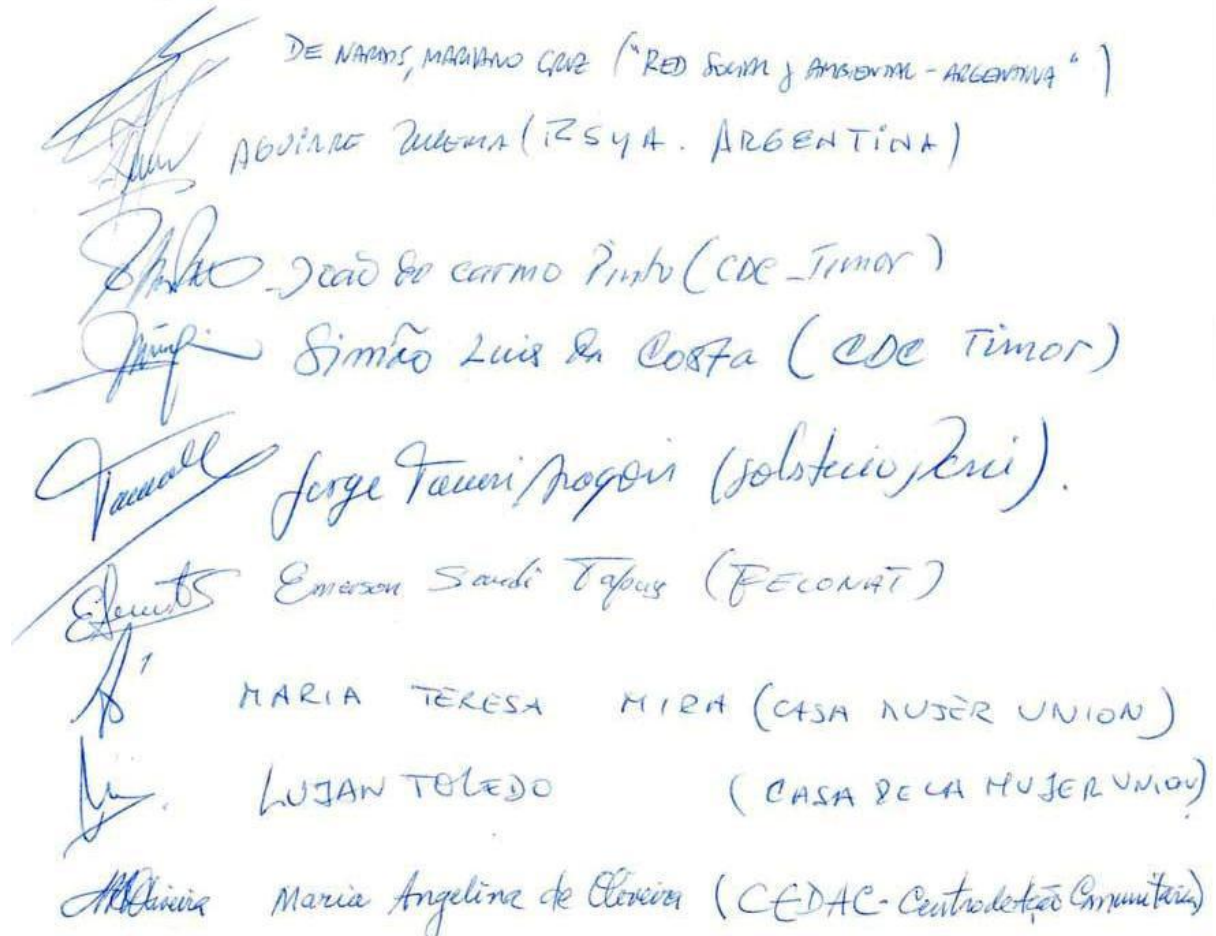 DE NARDIS, MARIANO CRUZ ("RED SOCIAL y AMBIENTAL - ARGENTINA")
AGUIRRE ZULEMA (RSyA. ARGENTINA)
João do carmo Pinto (CDC_Timor)
Simão Luis da Costa (CDC Timor)
Jorge (Solsticio, Perú).
Emerson Sandi Tapuy (FECONAT)
MARIA TERESA MIRA (CASA MUJER UNION)
LUJAN TOLEDO (CASA DE LA MUJER UNION)
MAOliveira Maria Angelina de Oliveira (CEDAC - Centro de Ação Comunitária)